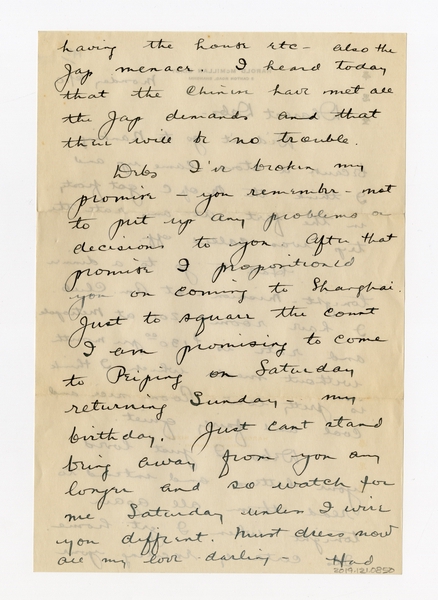 having the house etc - also the
Jap menace. I heard today
that the Chinese have met all
the Jap demands and that
there will be no trouble.
Debs I've broken my
promise - you remember - not
to put up any problems or
decisions to you. After that
promise I propositioned
you on coming to Shanghai.
Just to square the count
I am promising to come
to Peiping on Saturday
returning Sunday - my
birthday. Just cant stand
being away from you any
longer and so watch for
me Saturday unless I wire
you different. Must dress now
all my love darling - Had
2019.121.0850